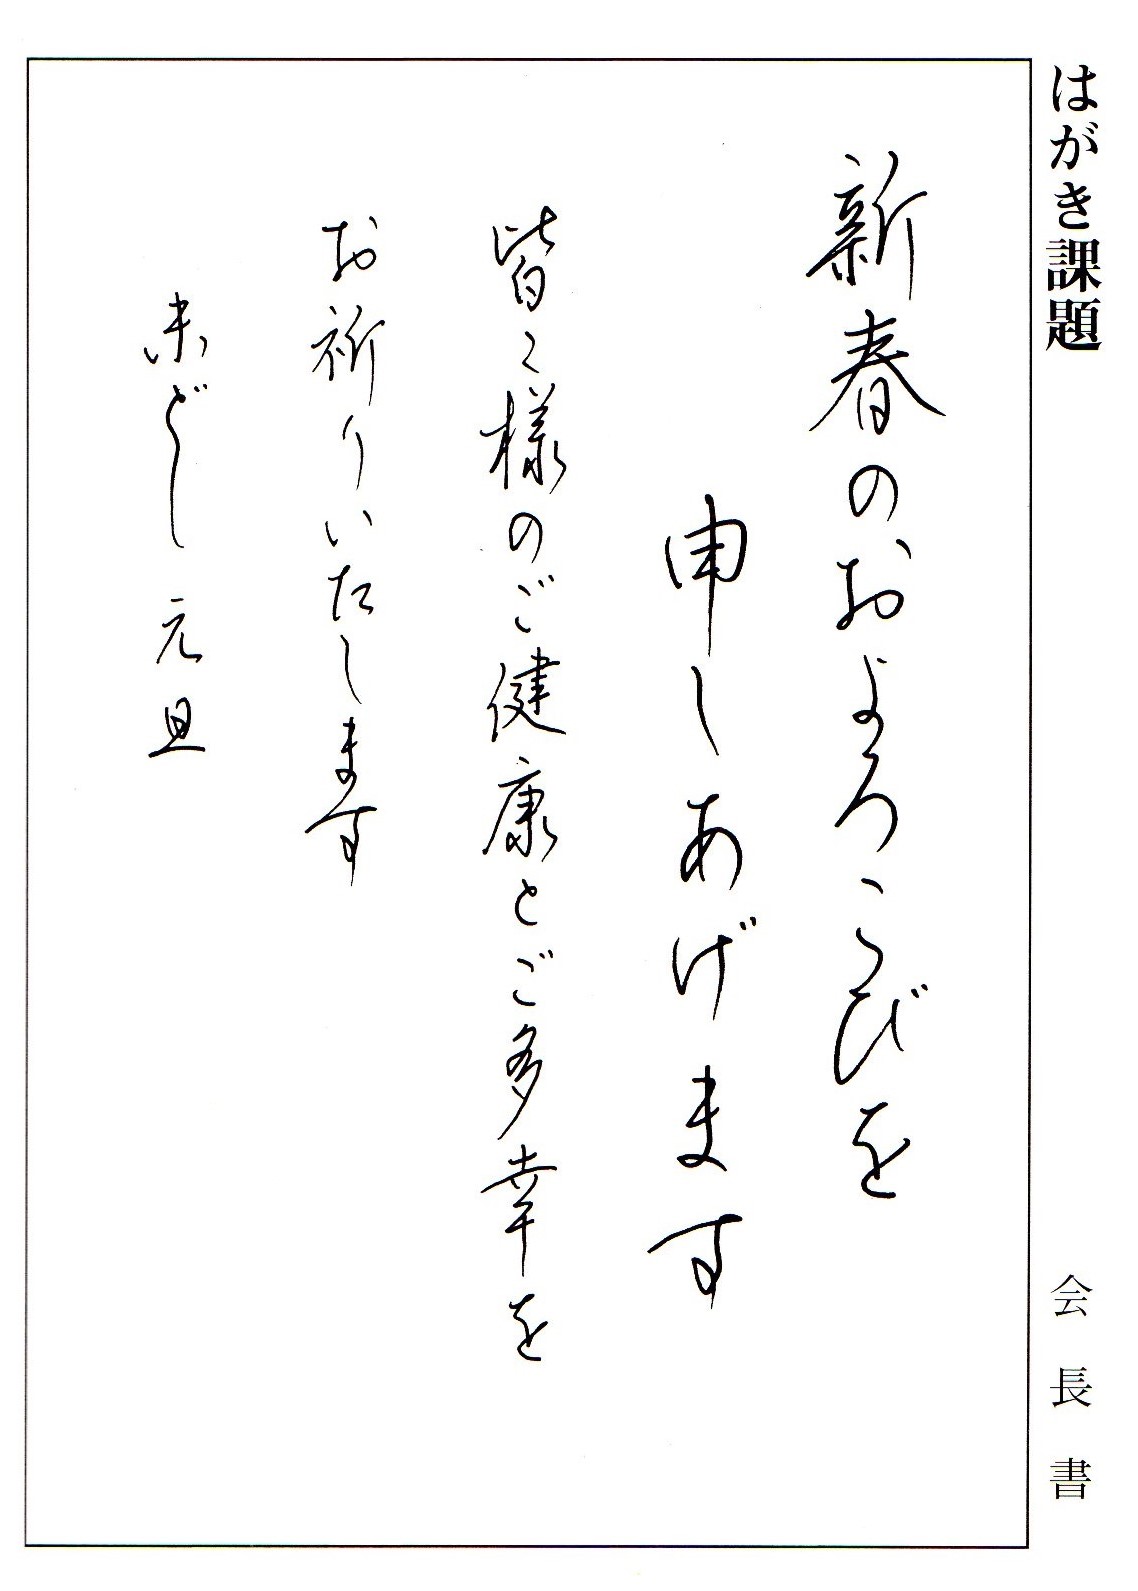 はがき課題
会長書
新春のおよろこびを
申しあげます
皆々様のご健康とご多幸を
お祈りいたします
未どし 元旦